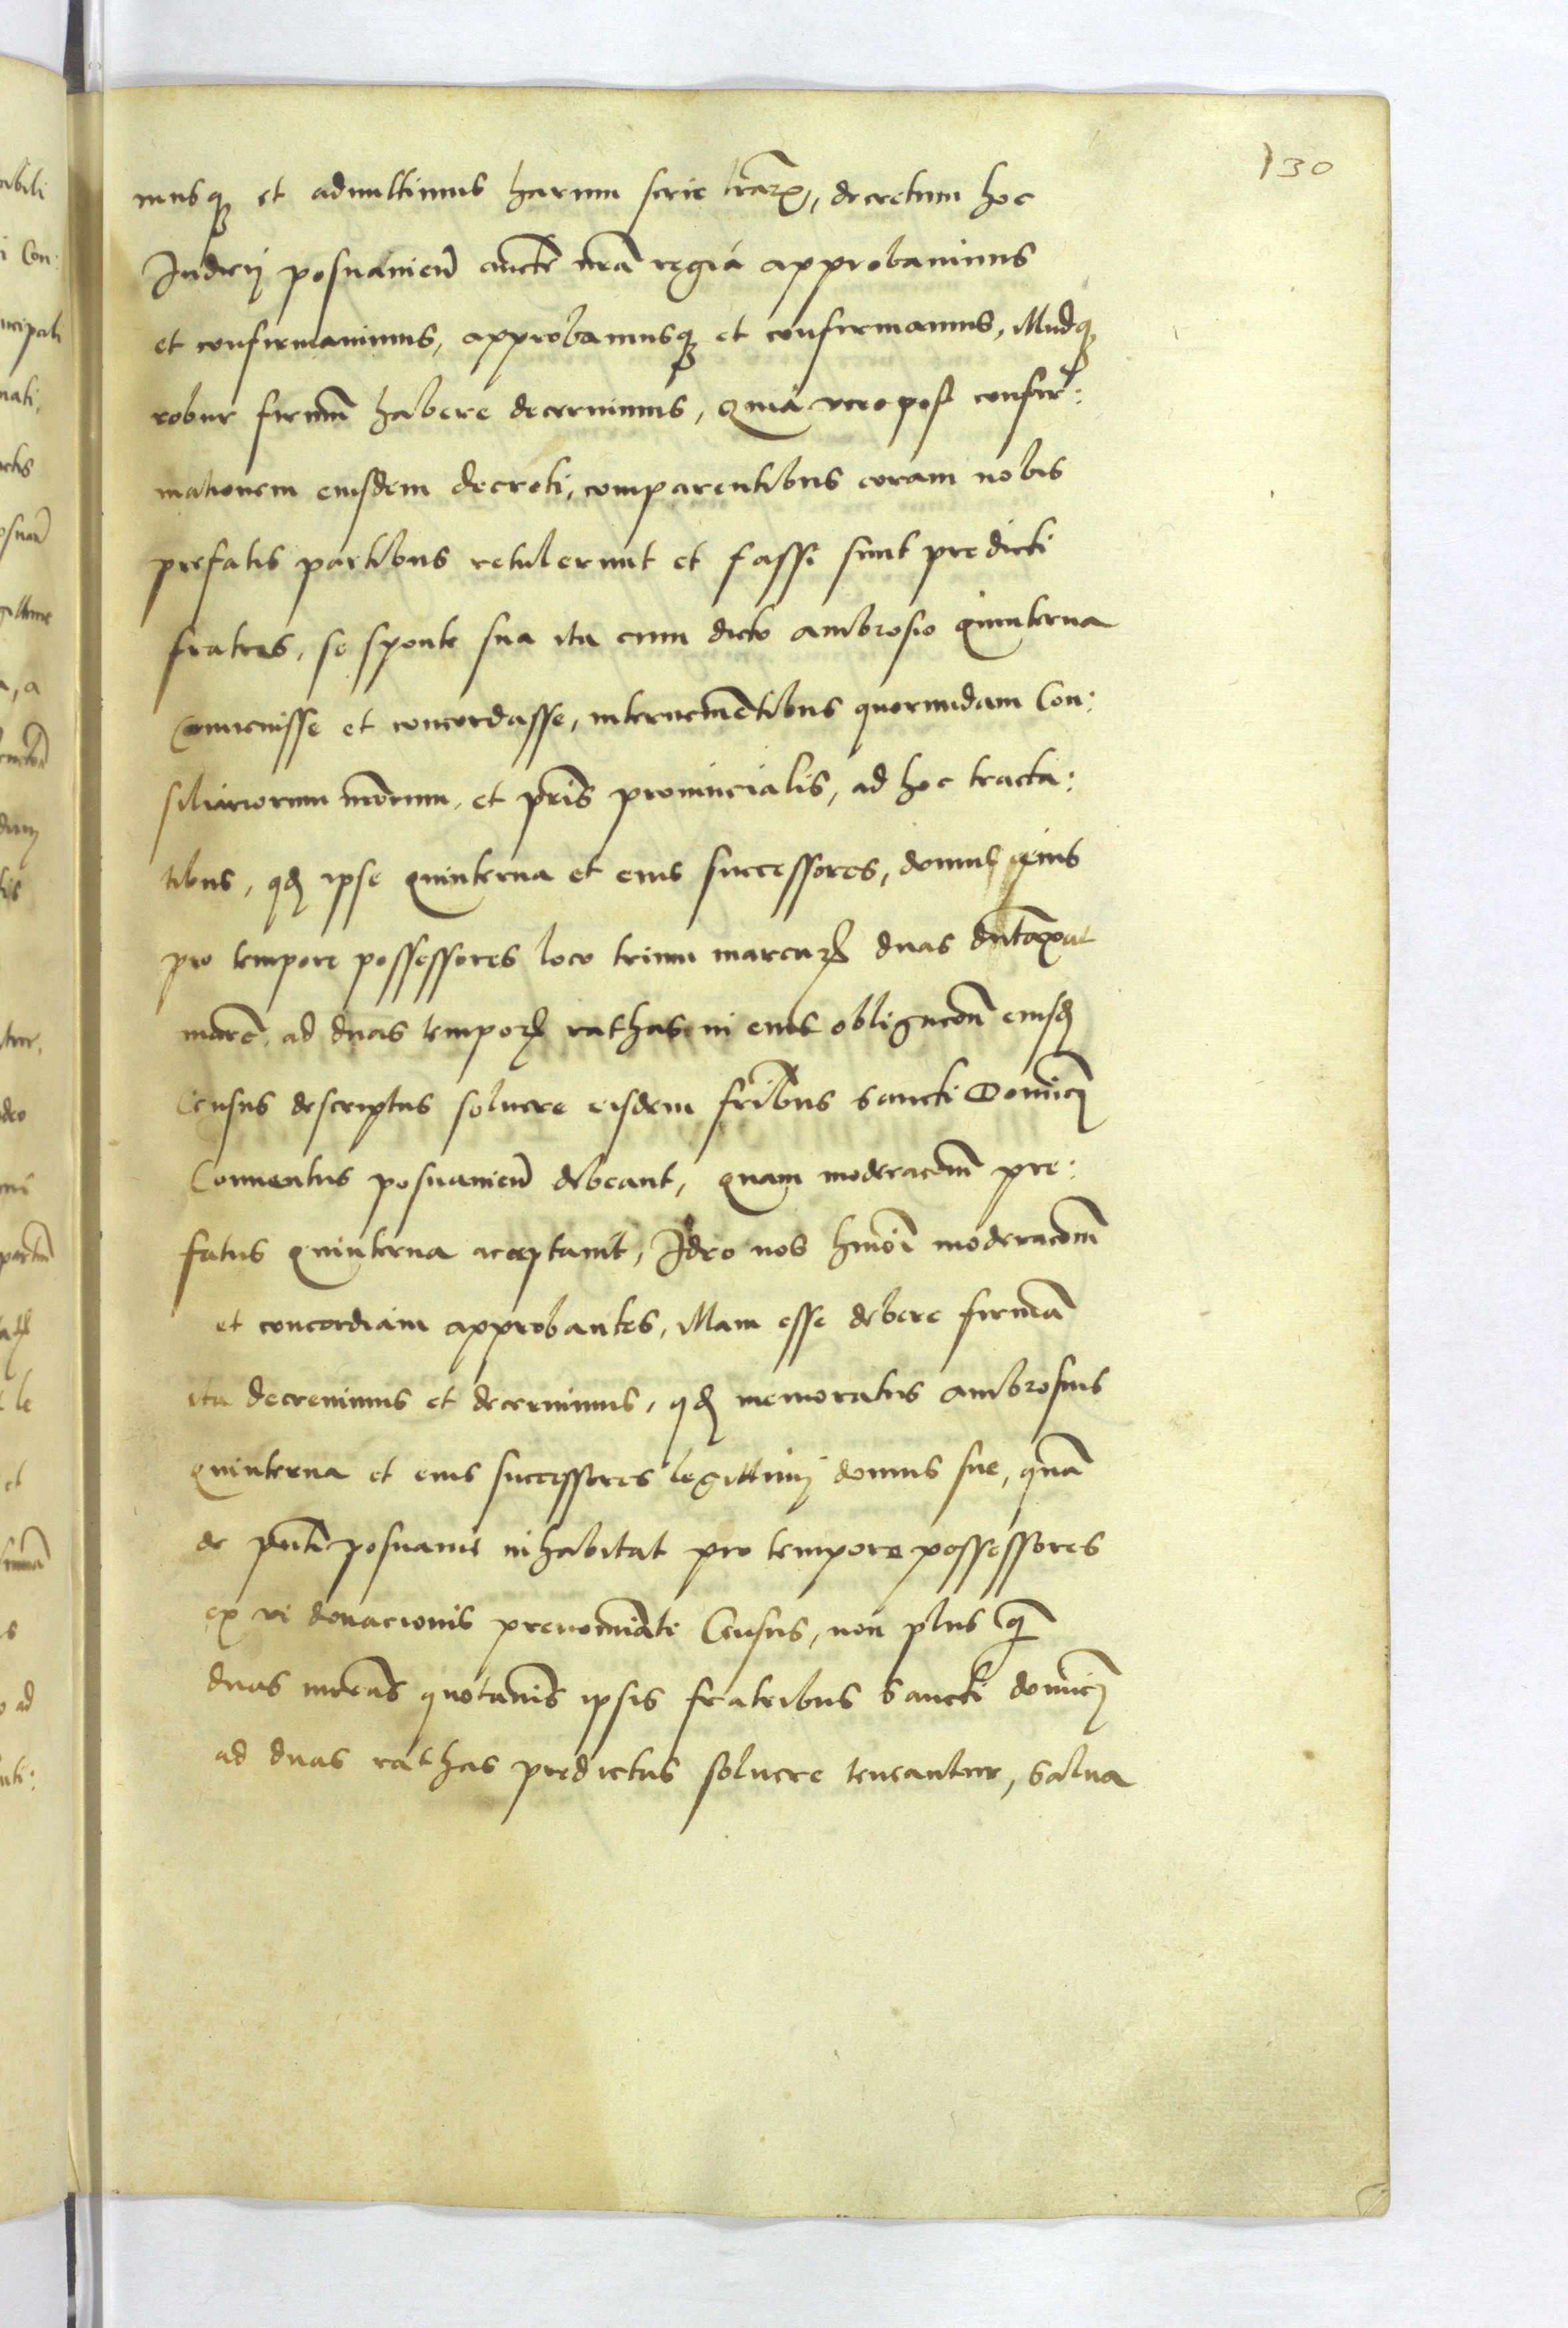 130
musq et admittimus harum serie lrarꝝ, decretum hoc
Iudicij posnanien̄ aucte nrā regia approbauimus
et confirmauimus, approbamusq et confirmamus, Illudq
robur firmū habere decernimus, Quia vero post confir:
mationem eiusdem decreti, comparentibus coram nobis
prefatis partibus retulerunt et fassi sunt predicti
fratres, se sponte sua ita cum dicto ambrosio quinterna
Conuenisse et concordasse, interuenientibus quorundam Con:
siliariorum nrorum, et pris prouincialis, ad hoc tracta:
tibus, qđ ipse quinterna et eius successores, domus eius
pro tempore possessores loco trium marcarꝝ duas dūtaxat
marc̄. ad duas temporꝝ rathas in eius obligacōn eiusđ
Census descriptas soluere eisdem frībus Sancti Dominicj
Conuentus posnanien̄ debeant, quam moderacōm pre:
fatus quinterna acceptauit, Ideo nos hmōi moderacōm
et concordiam approbantes, Illam esse debere firmā
ita decreuimus et decernimus, qđ memoratus ambrosius
quinterna et eius successores legittimj domus sue, quā
de pūti posnanie inhabitat pro tempore possessores
ex vi donacionis prenomiāti Census, non plus q̄
duas mrcas quotannis ipsis fratribus Sancti dominicj
ad duas rathas predictas soluere teneantur, Salua